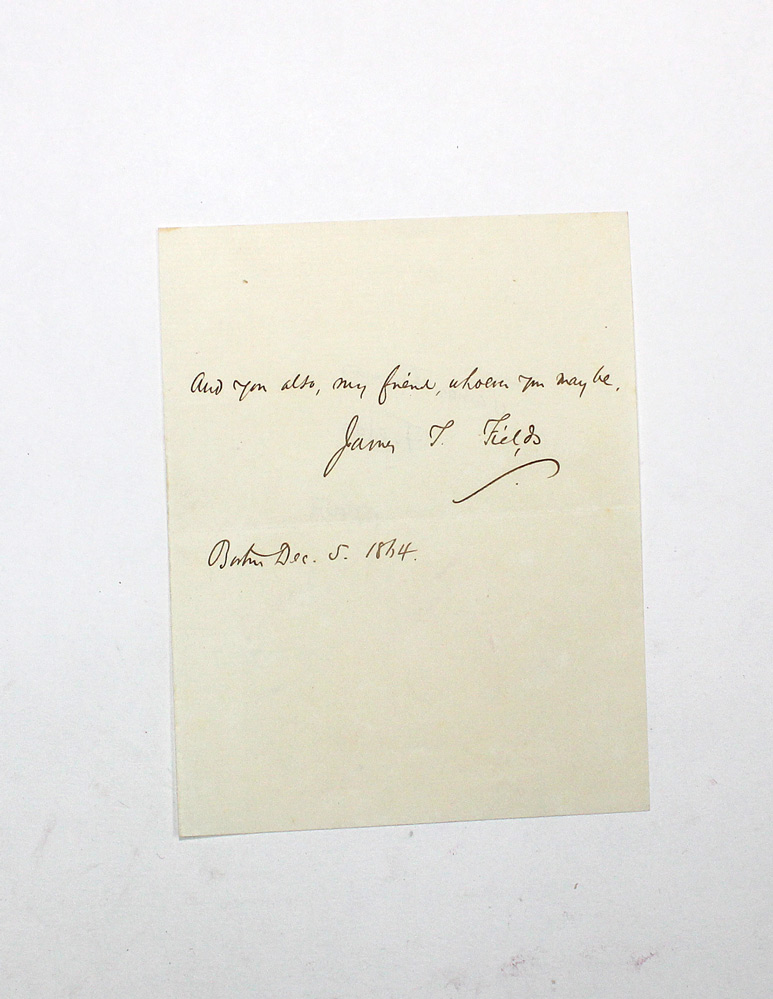 And you also, my friend, whoever you may be.
James T. Fields
Boston Dec. 5. 1864.